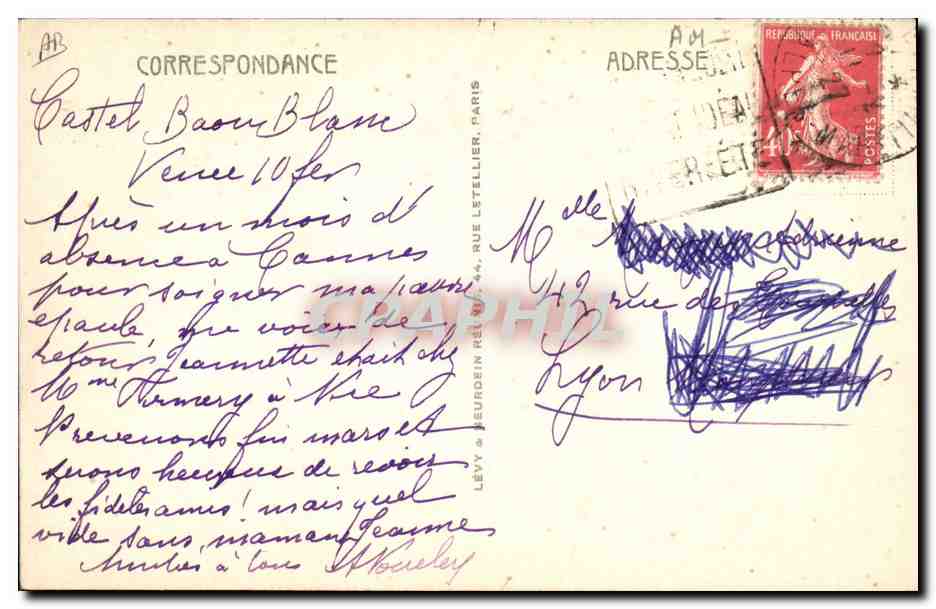 AB
CORRESPONDANCE
Castel Baou Blanc
Vence 10 fev
Après un mois d'
absence à Cannes
pour soigner ma pauvre
epaule, me voici de
retour. Jeannette était chez
Mme à Nice
Prevenons fin mars et
serons heureux de revoir
les fidèles amis! mais quel
vide sans maman Jeanne
Amitiés à tous
LÉVY & NEURDEIN RÉUNIS, 44, RUE LETELLIER, PARIS
CPAPHIL
AM
ADRESSE
REPUBLIQUE FRANÇAISE
POSTES
40
IDÉAL
HIVER-ÉTÉ
Melle
42 rue des
Lyon